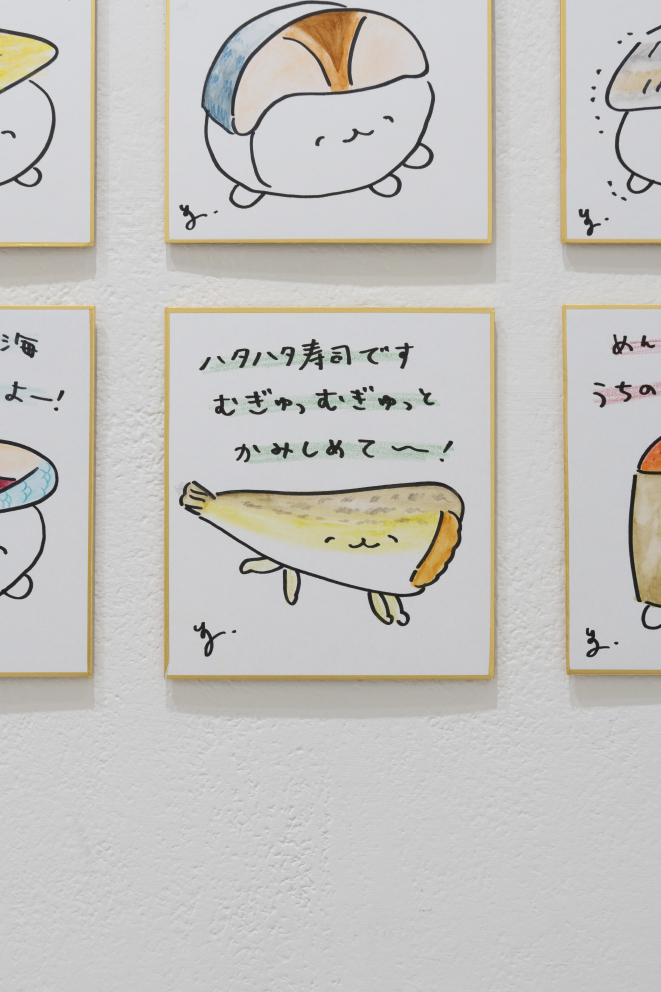 海
よー!
ハタハタ寿司です
むぎゅっむぎゅっと
かみしめて〜!
めん
うちの
y.
y.
y.
y.